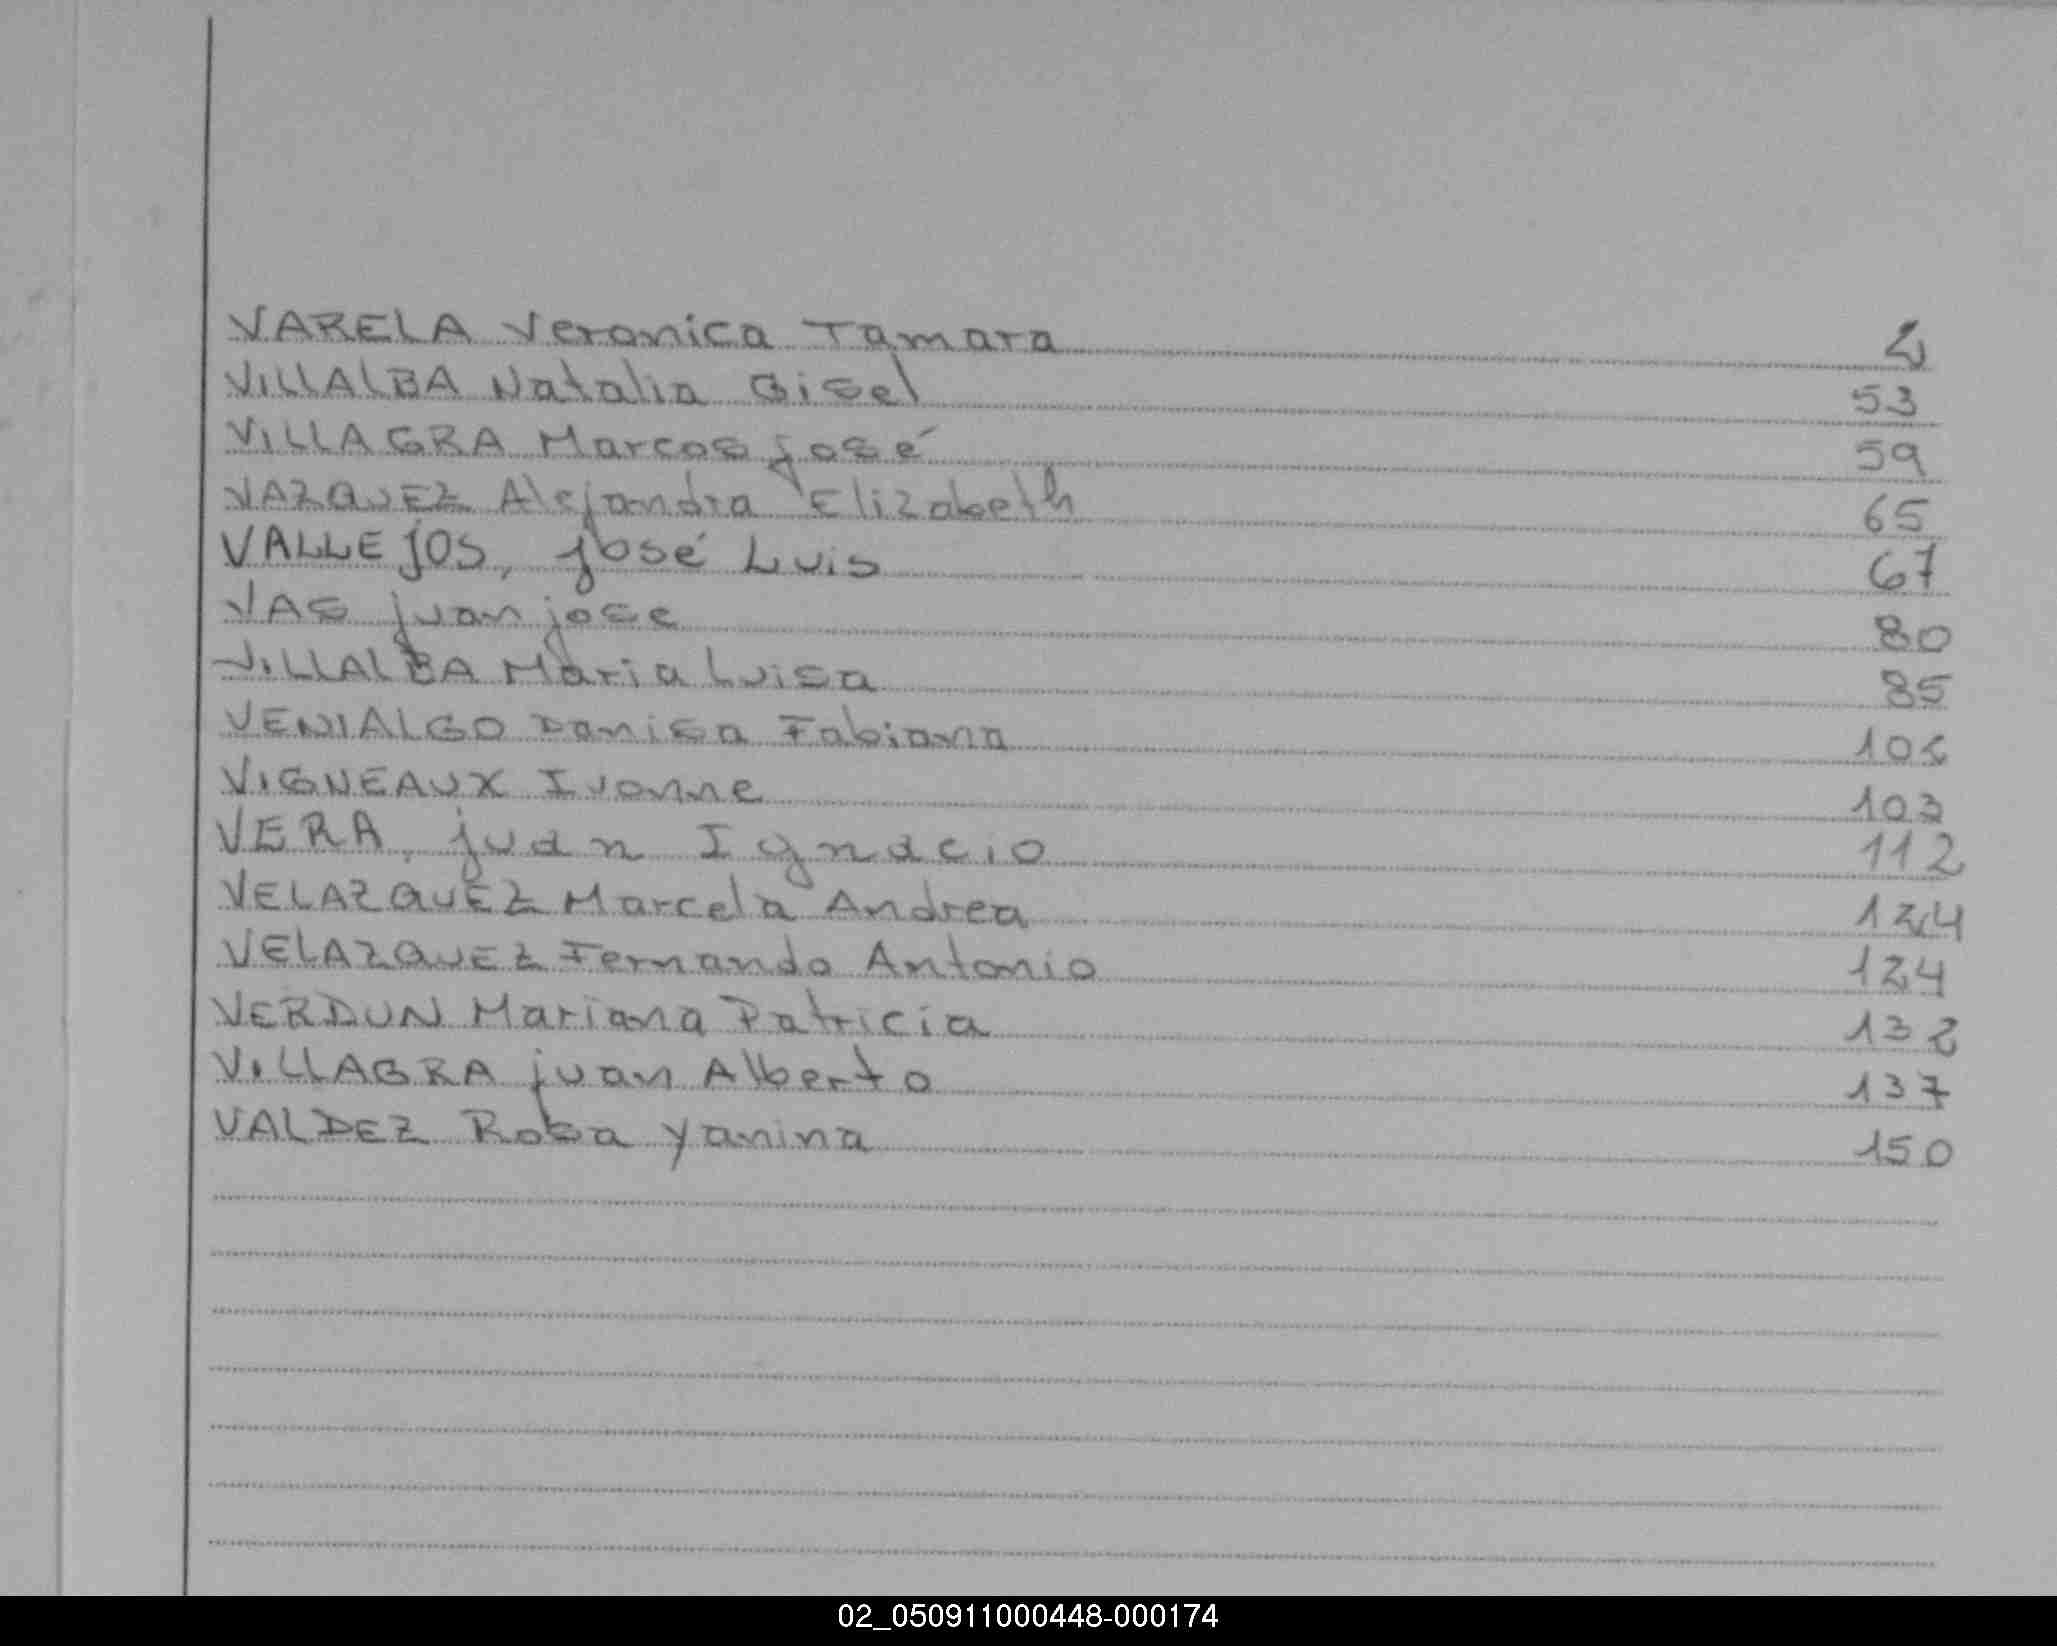 VARELA Veronica Tamara 2
VILLALBA Natalia Gisel 53
VILLAGRA Marcos josé 59
VAZQUEZ Alejandra Elizabeth 65
VALLEjOS, josé Luis 67
VAS juan jose 80
VILLALBA Maria Luisa 85
VENIALGO Danisa Fabiana
VIGNEAUX Ivonne 103
VERA, juan Ignacio 112
VELAZQUEZ Marcela Andrea 124
VELAZQUEZ Fernando Antonio 124
VERDUN Mariana Patricia 132
VILLAGRA juan Alberto 137
VALDEZ Rosa yanina 150
02_050911000448-000174